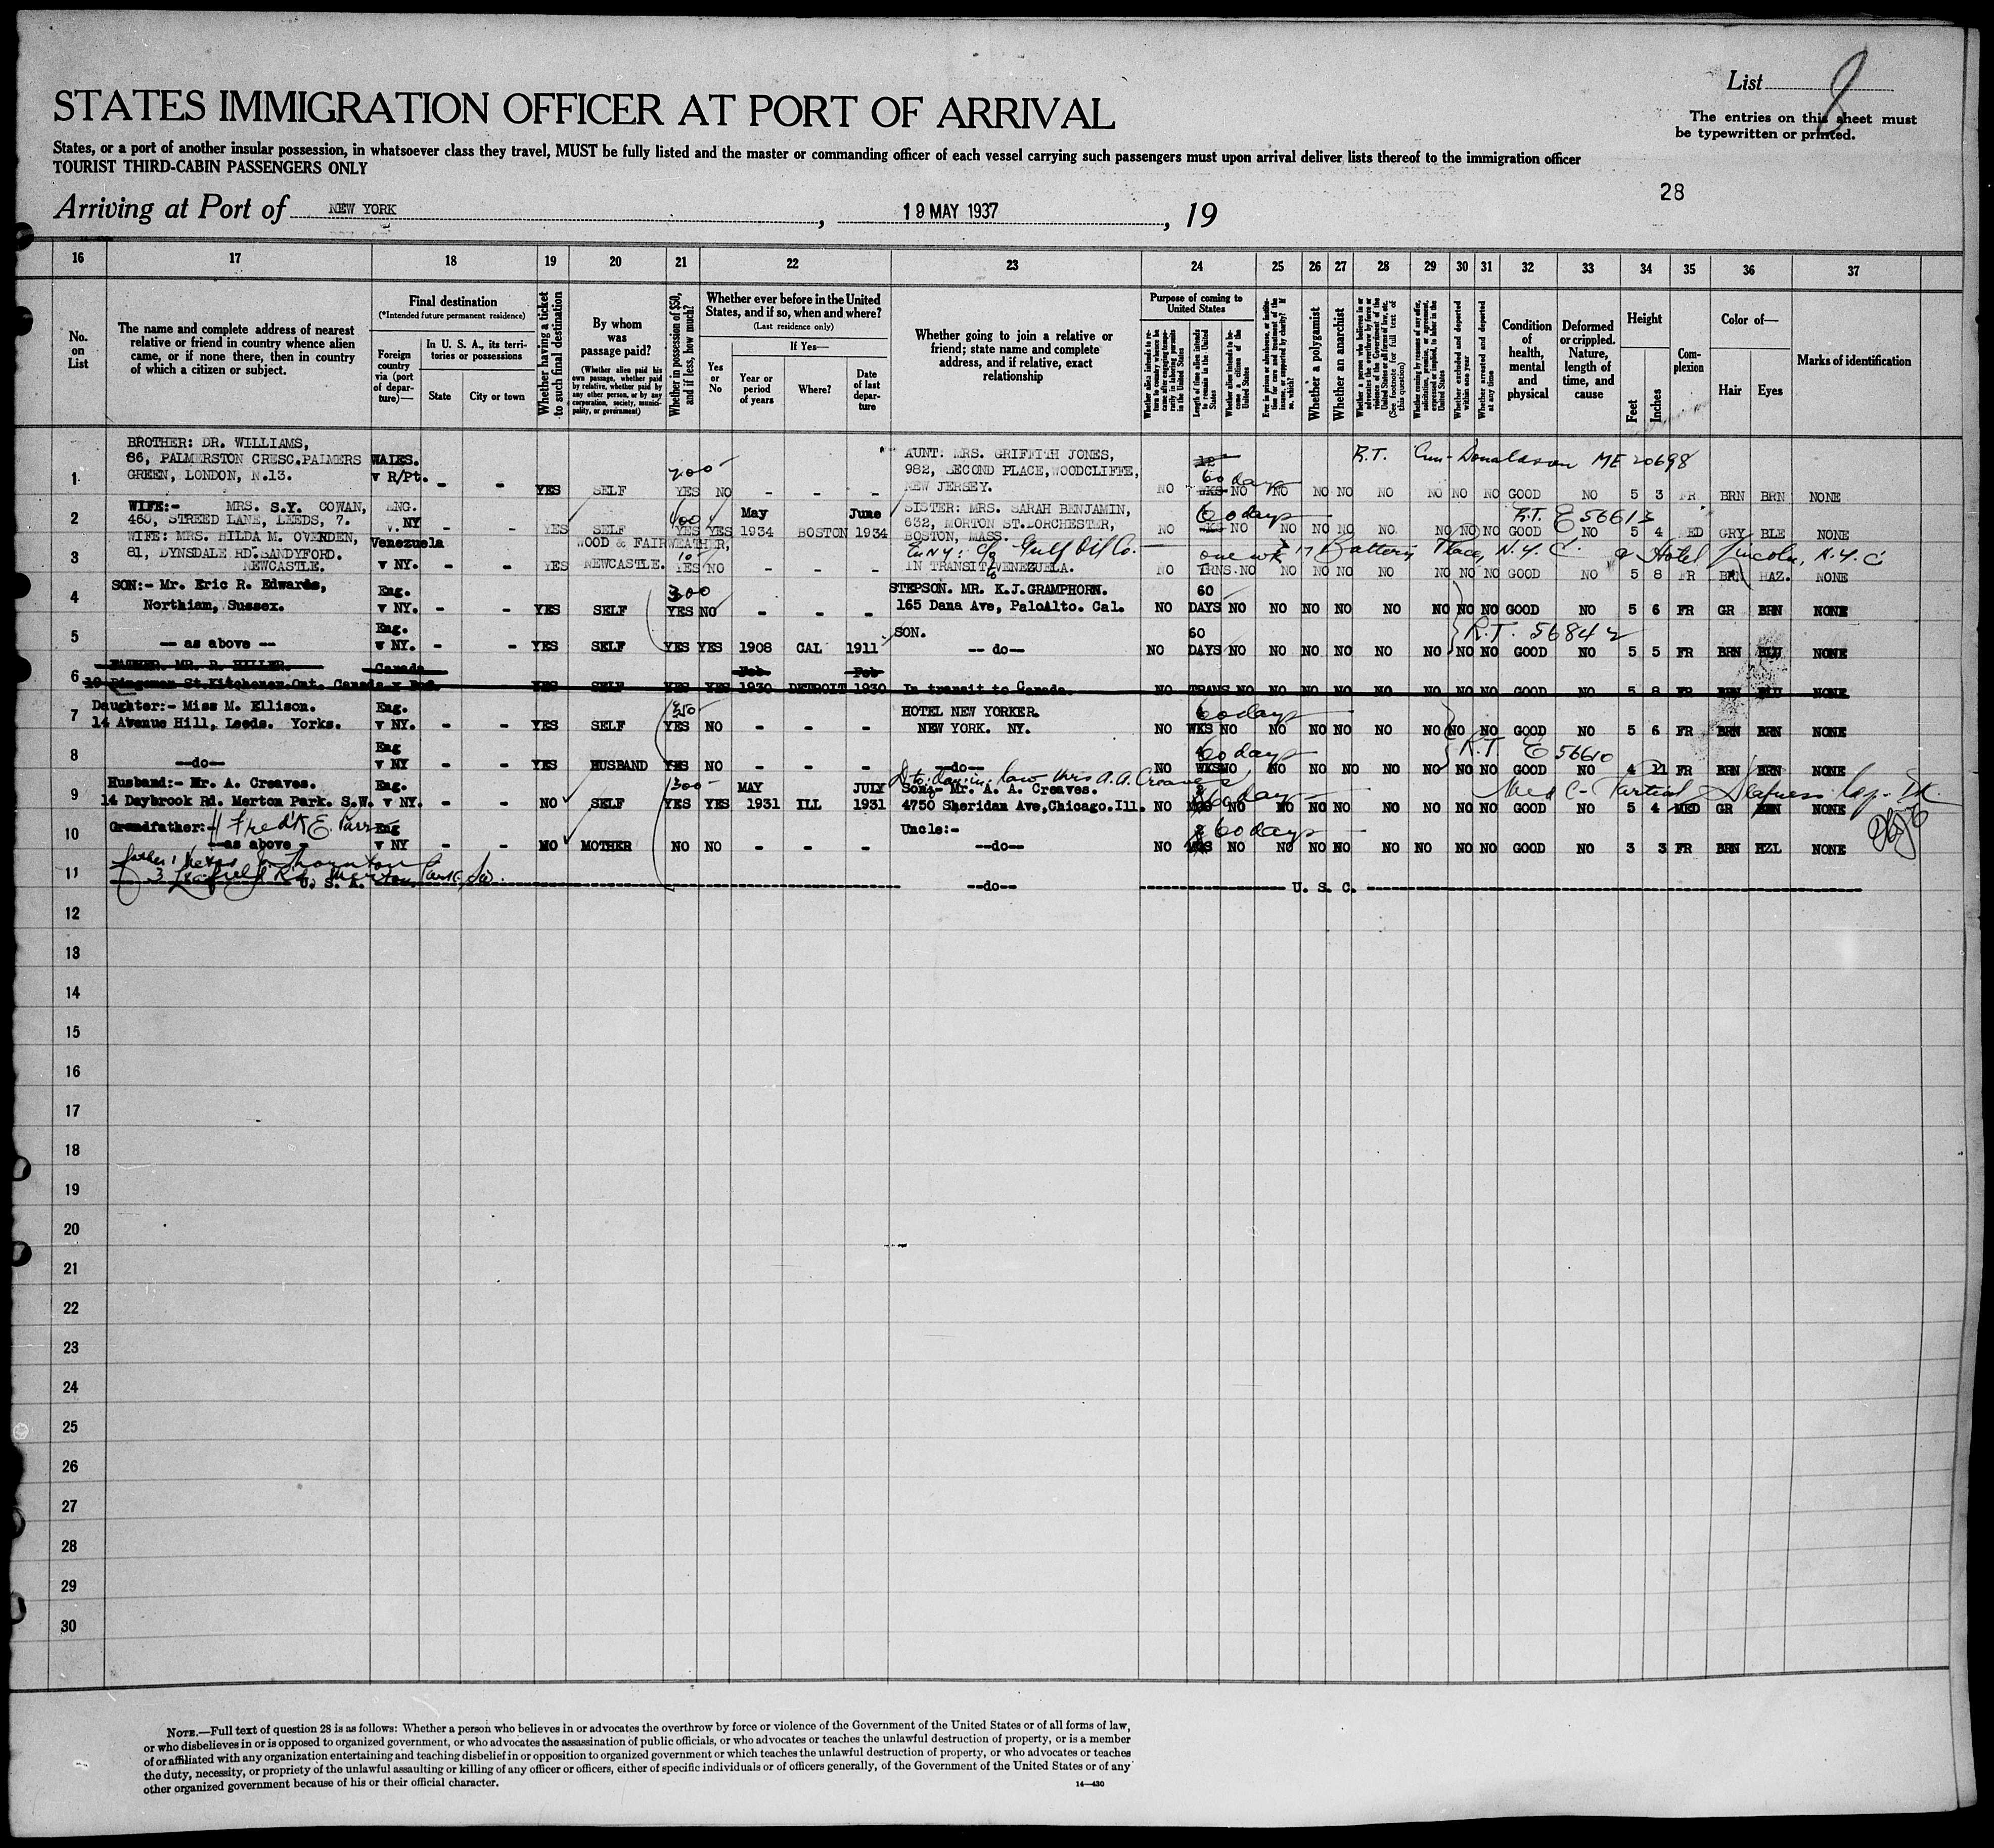 List 8
The entries on this sheet must
be typewritten or printed.
STATES IMMIGRATION OFFICER AT PORT OF ARRIVAL
States, or a port of another insular possession, in whatsoever class they travel, MUST be fully listed and the master or commanding officer of each vessel carrying such passengers must upon arrival deliver lists thereof to the immigration officer
TOURIST THIRD-CABIN PASSENGERS ONLY
28
Arriving at Port of NEW YORK, 19 MAY 1937, 19
16 17 18 19 20 21 22 23 24 25 26 27 28 29 30 31 32 33 34 35 36 37
No. on List
The name and complete address of nearest
relative or friend in country whence alien
came, or if none there, then in country
of which a citizen or subject.
Final destination
(*Intended future permanent residence)
Foreign country via (port of departure)—
In U. S. A., its territories or possessions
State
City or town
Whether having a ticket to such final destination
By whom was passage paid?
(Whether alien paid his own passage, whether paid by relative, whether paid by any other person, or by any corporation, society, municipality, or government)
Whether in possession of $50, and if less, how much?
Whether ever before in the United
States, and if so, when and where?
(Last residence only)
Yes or No
If Yes—
Year or period of years
Where?
Date of last departure
Whether going to join a relative or
friend; state name and complete
address, and if relative, exact
relationship
Purpose of coming to United States
Length of time alien intends to remain in the United States
Whether alien intends to become a citizen of the United States
Whether a polygamist
Whether an anarchist
Whether excluded and deported within one year
Whether arrested and deported at any time
Condition of health, mental and physical
Deformed or crippled. Nature, length of time, and cause
Height
Feet
Inches
Complexion
Color of—
Hair
Eyes
Marks of identification
1 BROTHER: DR. WILLIAMS,
86, PALMERSTON CRESC.PALMERS
GREEN, LONDON, N.13.
WALES.
v R/Pt. - - YES SELF 200 YES NO - - -
AUNT: MRS. GRIFFITH JONES,
982, SECOND PLACE, WOODCLIFFE,
NEW JERSEY.
R.T. Cun-Donaldson ME 20698
NO 60 days WKS NO NO NO NO NO NO NO NO GOOD NO 5 3 FR BRN BRN NONE
2 WIFE:- MRS. S.Y. COWAN,
460, STREED LANE, LEEDS, 7.
ENG.
v. NY - - YES SELF 400 YES YES May 1934 BOSTON June 1934
SISTER: MRS. SARAH BENJAMIN,
632, MORTON ST.DORCHESTER,
BOSTON, MASS.
R.T. E 56613
NO 60 days WKS NO NO NO NO NO NO NO NO GOOD NO 5 4 MED GRY BLE NONE
3 WIFE: MRS. HILDA M. OVERDEN,
81, DYNSDALE RD.SANDYFORD.
NEWCASTLE.
Venezuela
v NY. - - YES WOOD & FAIRWEATHER, NEWCASTLE. 10 YES NO - - -
En NY: c/o Gulf Oil Co. 17 Battery Place, N.Y.C. & Hotel Lincoln, N.Y.C
IN TRANSIT to VENEZUELA.
NO one wk TRNS. NO NO NO NO NO NO NO NO GOOD NO 5 8 FR BRN HAZ. NONE
4 SON:- Mr. Eric R. Edwards,
Northiam, Sussex.
Eng.
v NY. - - YES SELF 300 YES NO - - -
STEPSON. MR. K.J.GRAMPHORN.
165 Dana Ave, PaloAlto. Cal.
NO 60 DAYS NO NO NO NO NO NO NO NO GOOD NO 5 6 FR GR BRN NONE
5 -- as above --
Eng.
v NY. - - YES SELF YES YES 1908 CAL 1911
SON.
--do--
R.T. 56842
NO 60 DAYS NO NO NO NO NO NO NO NO GOOD NO 5 5 FR BRN BLU NONE
6 FATHER. MR. R. HILLER.
19 Dingeman St.Kitchener.Ont. Canada
Canada
YES SELF YES YES Feb 1930 DETROIT Feb 1930 In transit to Canada.
NO TRANS NO NO NO NO NO NO NO NO GOOD NO 5 8 FR BRN BLU NONE
7 Daughter:- Miss M. Ellison.
14 Avenue Hill, Leeds. Yorks.
Eng.
v NY. - - YES SELF 350 YES NO - - -
HOTEL NEW YORKER.
NEW YORK. NY.
NO 60 days WKS NO NO NO NO NO NO NO NO GOOD NO 5 6 FR BRN BRN NONE
8 --do--
Eng
v NY - - YES HUSBAND YES NO - - - --do--
R.T. E 56610
NO 60 days WKS NO NO NO NO NO NO NO NO GOOD NO 4 11 FR BRN BRN NONE
9 Husband:- Mr. A. Creaves.
14 Daybrook Rd. Merton Park. S.W.
Eng.
v NY. - - NO SELF 300 YES YES MAY 1931 ILL JULY 1931
Son:- Mr. A. A. Creaves.
4750 Sheridan Ave,Chicago.Ill.
Med C- Partial Deafness
NO 60 days MOS NO NO NO NO NO NO NO NO GOOD NO 5 4 MED GR NONE
10 Grandfather:- Fredk E. Parr
--as above --
Eng
v NY - - NO MOTHER NO NO - - -
Uncle:-
--do--
NO 60 days MOS NO NO NO NO NO NO NO NO GOOD NO 3 3 FR BRN HZL NONE
11 father: Thornton
3 Rd. Merton Park, Sw.
U. S. A. --do-- U. S. C.
12
13
14
15
16
17
18
19
20
21
22
23
24
25
26
27
28
29
30
NOTE.—Full text of question 28 is as follows: Whether a person who believes in or advocates the overthrow by force or violence of the Government of the United States or of all forms of law,
or who disbelieves in or is opposed to organized government, or who advocates the assassination of public officials, or who advocates or teaches the unlawful destruction of property, or is a member
of or affiliated with any organization entertaining and teaching disbelief in or opposition to organized government or which teaches the unlawful destruction of property, or who advocates or teaches
the duty, necessity, or propriety of the unlawful assaulting or killing of any officer or officers, either of specific individuals or of officers generally, of the Government of the United States or of any
other organized government because of his or their official character.
14—430